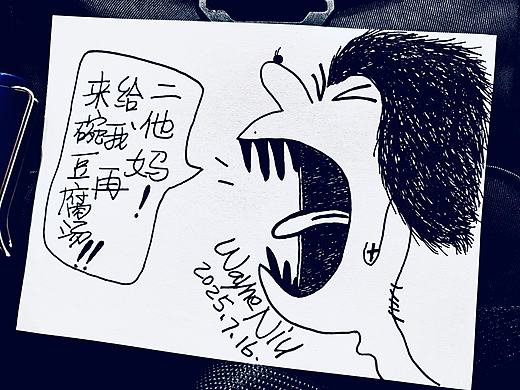 二他妈！
给我再
来碗豆腐汤！！
Wayne Niu
2025.7.16.